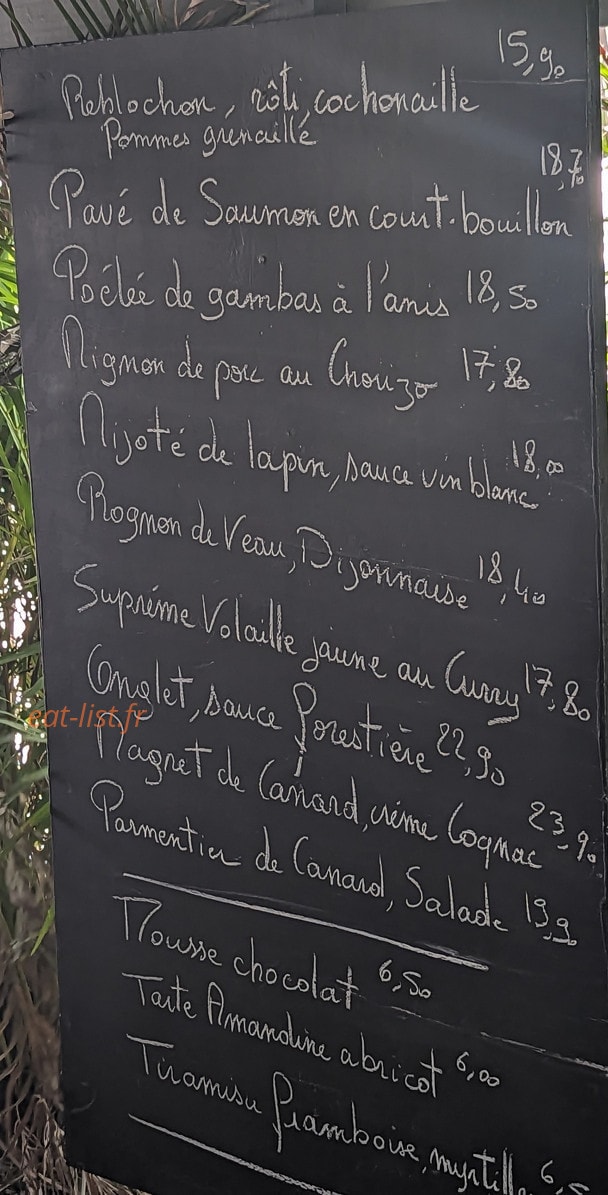 Reblochon, rôti, cochonaille 15,90
Pommes grenaillé
Pavé de Saumon en court-bouillon 18,70
Poêlée de gambas à l'anis 18,50
Mignon de porc au Chorizo 17,80
Mijoté de lapin, sauce vin blanc 18,00
Rognon de Veau, Dijonnaise 18,40
Suprême Volaille jaune au Curry 17,80
Onglet, sauce Forestière 22,90
eat-list.fr
Magret de Canard, crème Cognac 23,90
Parmentier de Canard, Salade 19,90
Mousse chocolat 6,50
Tarte Amandine abricot 6,00
Tiramisu framboise, myrtille 6,5